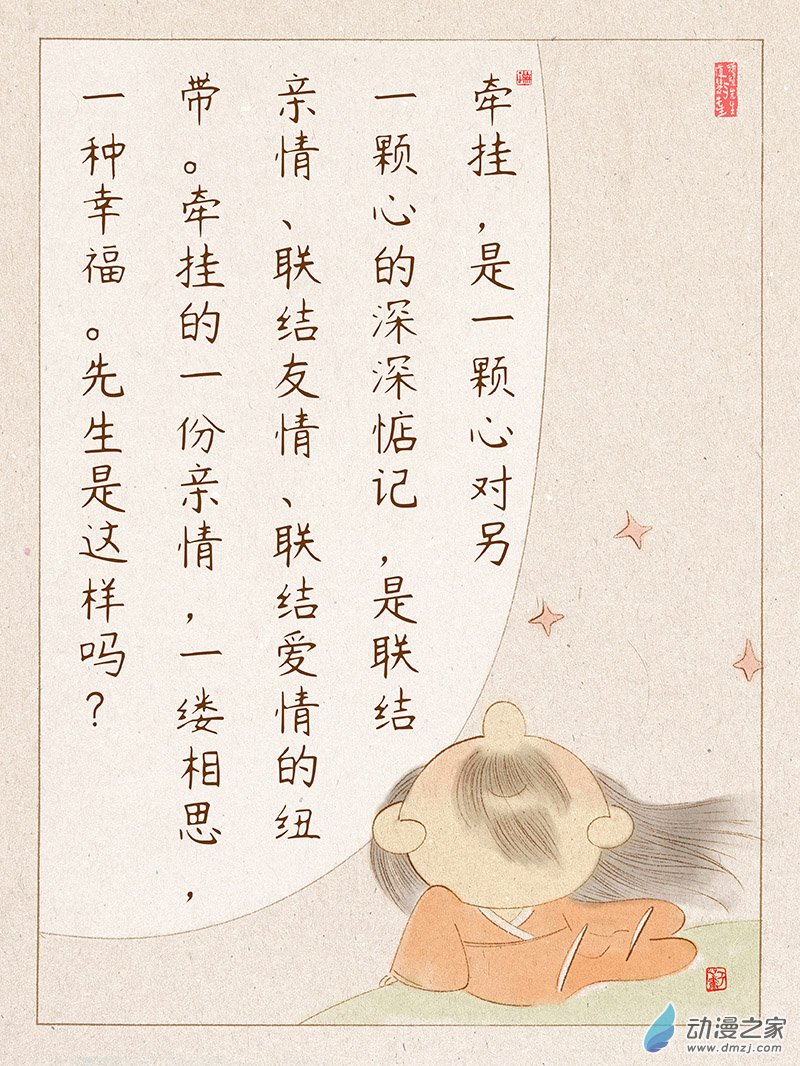 牵挂，是一颗心对另
一颗心的深深惦记，是联结
亲情、联结友情、联结爱情的纽
带。牵挂的一份亲情，一缕相思，
一种幸福。先生是这样吗？
动漫之家
www.dmzj.com